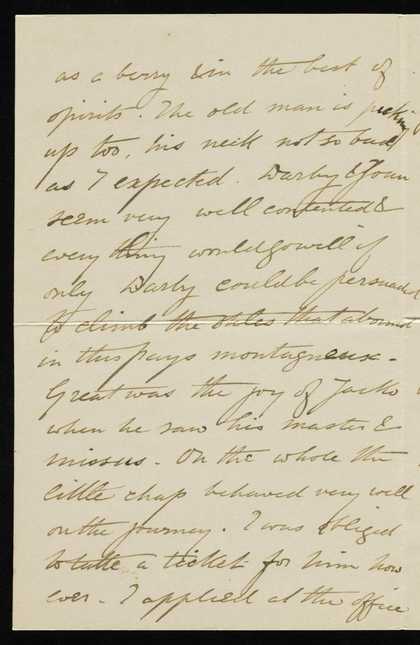 as a berry & in the best of
spirits. The old man is picking
up too, his neck not so bad
as I expected. Darby & Joan
seem very well contented &
everything would go well if
only Darby could be persuaded
to climb the stiles that abound
in this pays montagneux.
Great was the joy of Jacko
when he saw his master &
missus. On the whole the
little chap behaved very well
on the journey. I was obliged
to take a ticket for him how
ever. I applied at the office